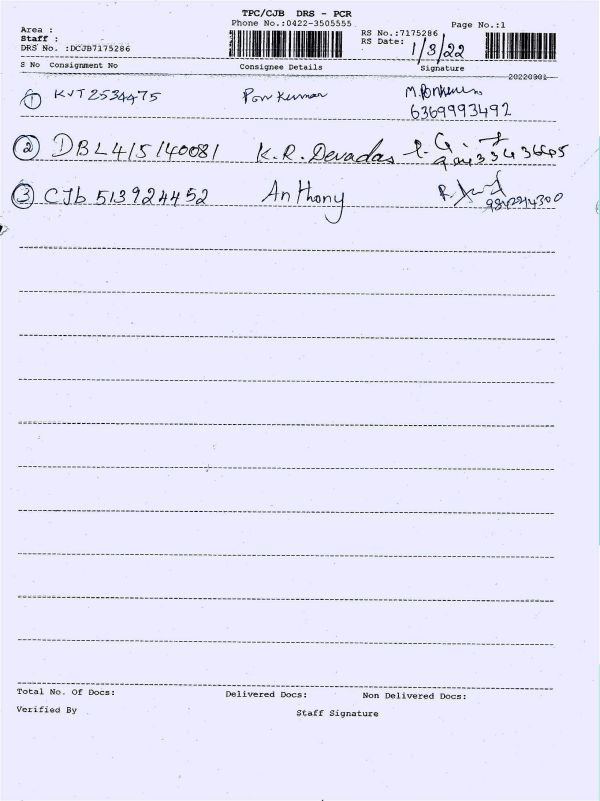 TPC/CJB DRS - PCR
Phone No.:0422-3505555
Page No.:1
Area :
Staff :
DRS No. :DCJB7175286
RS No.:7175286
RS Date: 1/3/22
S No Consignment No Consignee Details Signature
20220301
① KVT2534475 Pon Kumar
6369993492
② DBL415140081 K.R. Devadas
③ CJb 513924452 Anthony
Total No. Of Docs: Delivered Docs: Non Delivered Docs:
Verified By Staff Signature